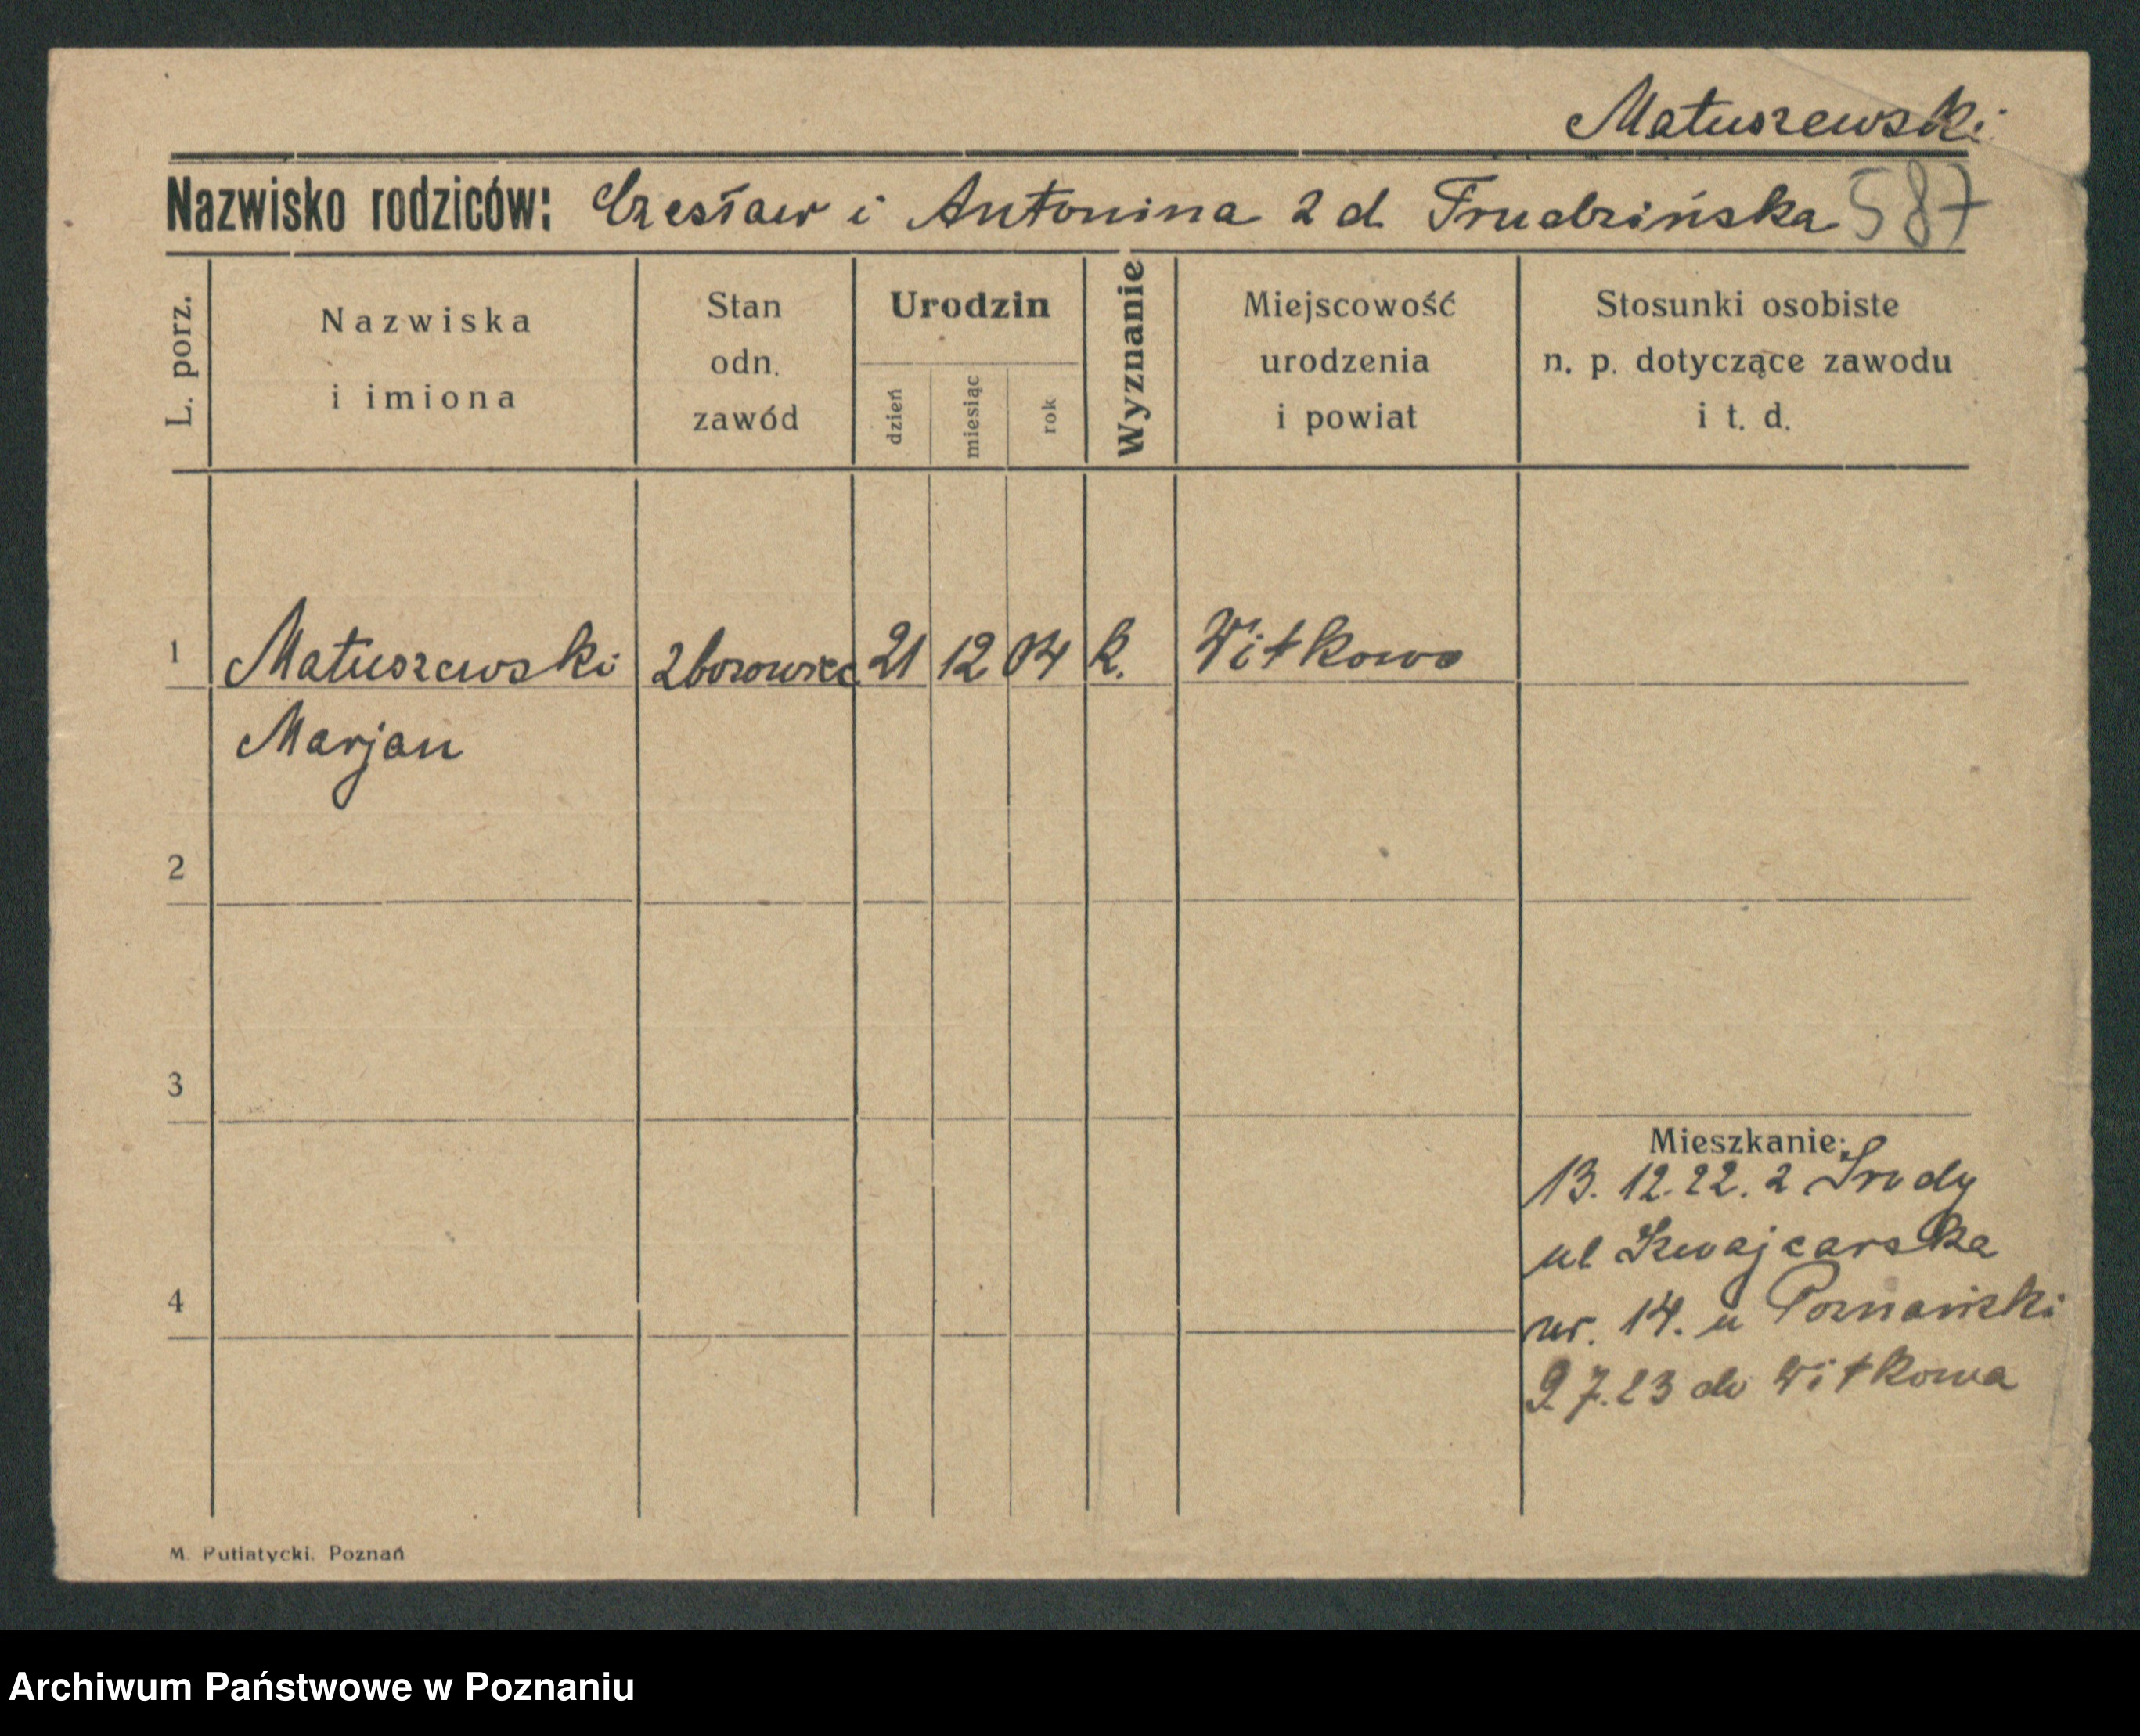 Matuszewski
Nazwisko rodziców: Czesław i Antonina z d Trudzińska 587
L. porz.
Nazwiska
i imiona
Stan
odn.
zawód
Urodzin
dzień
miesiąc
rok
Wyznanie
Miejscowość
urodzenia
i powiat
Stosunki osobiste
n. p. dotyczące zawodu
i t. d.
1 Matuszewski zborowiec 21 12 04 k. Witkowo
Marjan
2
3
Mieszkanie:
13. 12. 22. z Środy
ul Szwajcarska
4
nr. 14. u Poznański
9 7. 23 do Witkowa
M. Putiatycki. Poznań
Archiwum Państwowe w Poznaniu